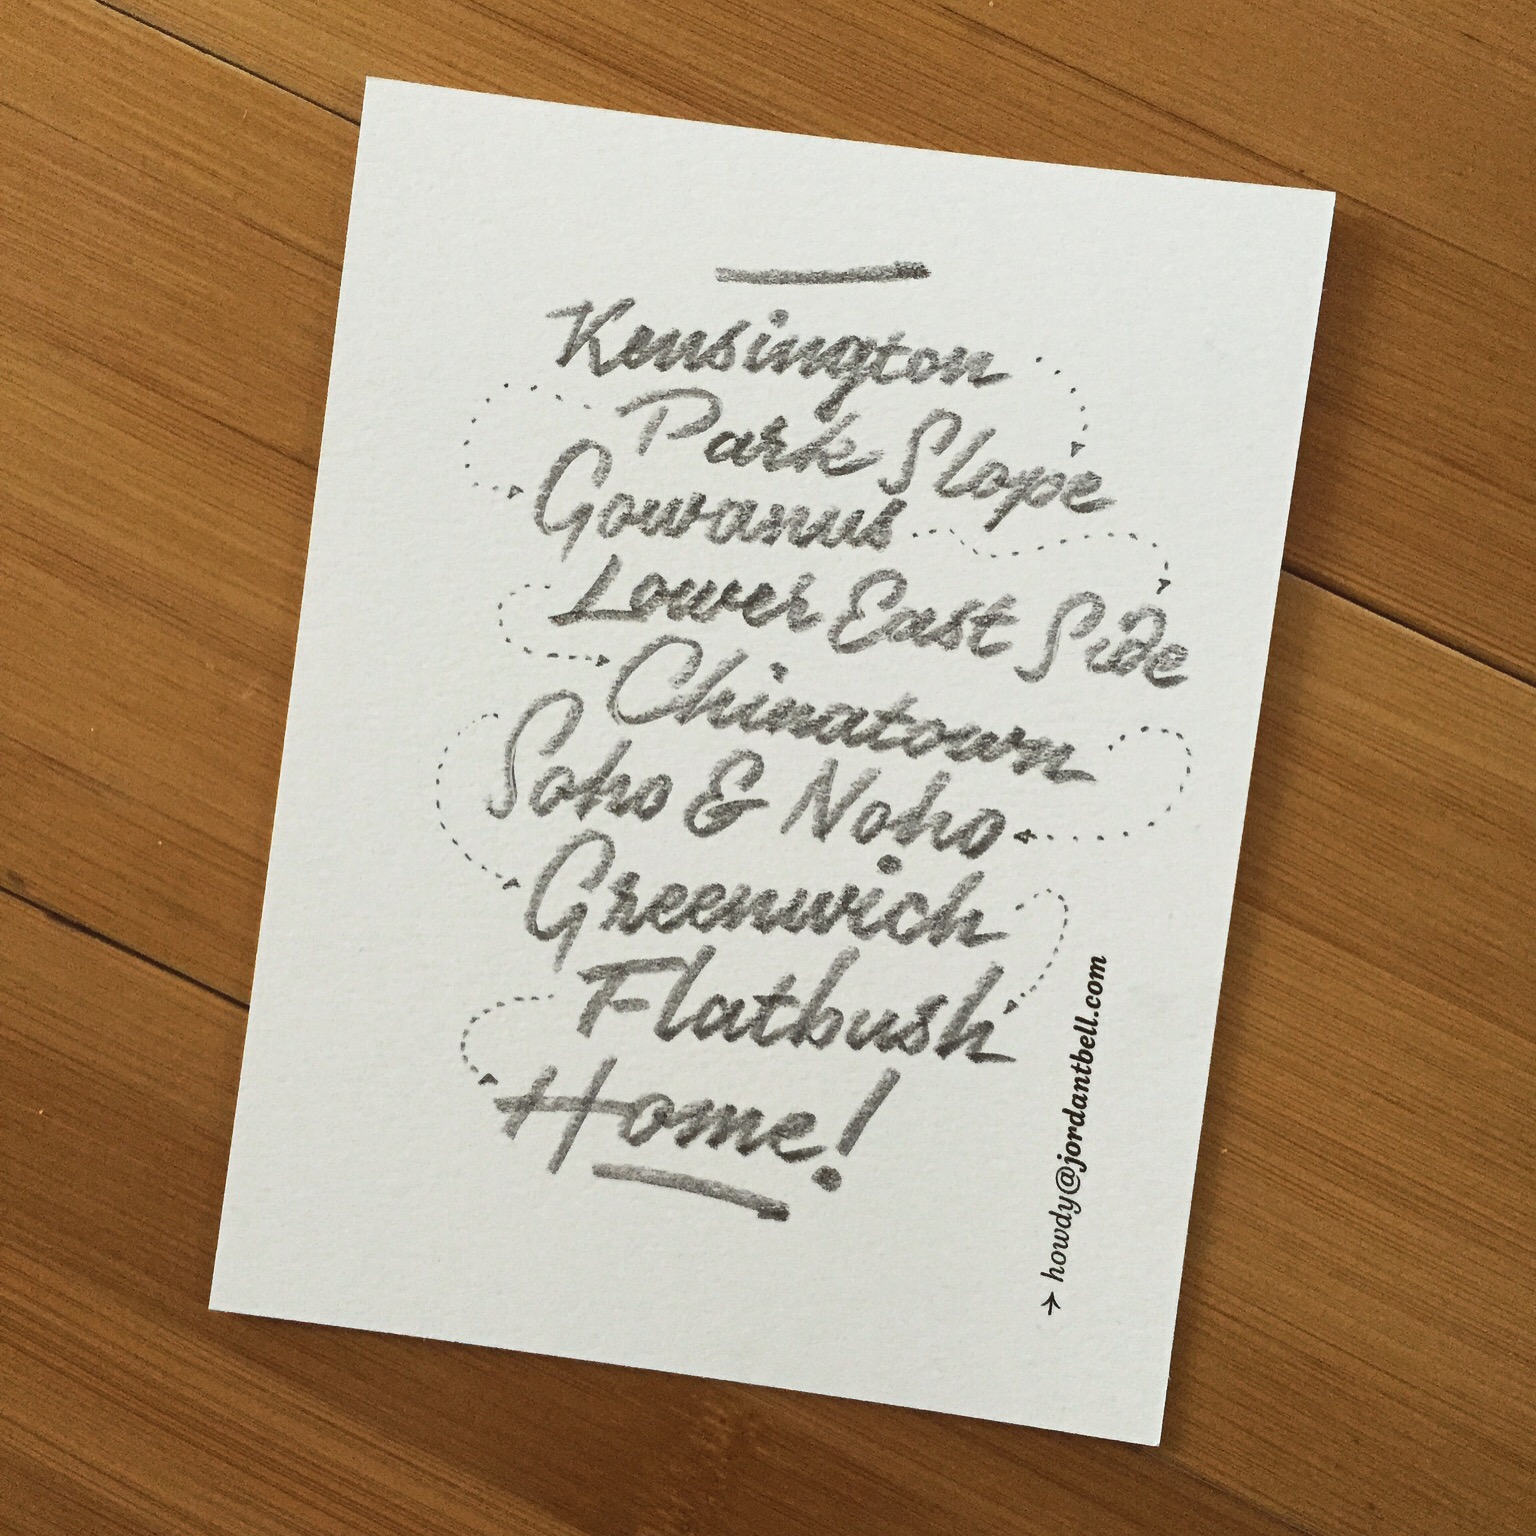 Kensington
Park Slope
Gowanus
Lower East Side
Chinatown
Soho & Noho
Greenwich
Flatbush
Home!
→ howdy@jordantbell.com